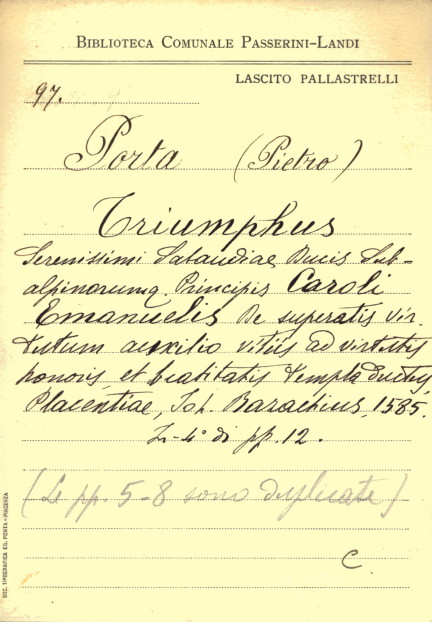 BIBLIOTECA COMUNALE PASSERINI-LANDI
LASCITO PALLASTRELLI
97.
Porta (Pietro)
Triumphus
Serenissimi Sabaudiae Ducis Sub-
alpinorumq. Principis Caroli
Emanuelis De superatis vir-
tutum auxilio vitiis ad virtutis
honoris et beatitatis templa ductus
Placentiae, Joh. Barachius, 1585.
In-4° di pp. 12.
(Le pp. 5-8 sono duplicate)
C
SOC. TIPOGRAFICA ED. PORTA - PIACENZA